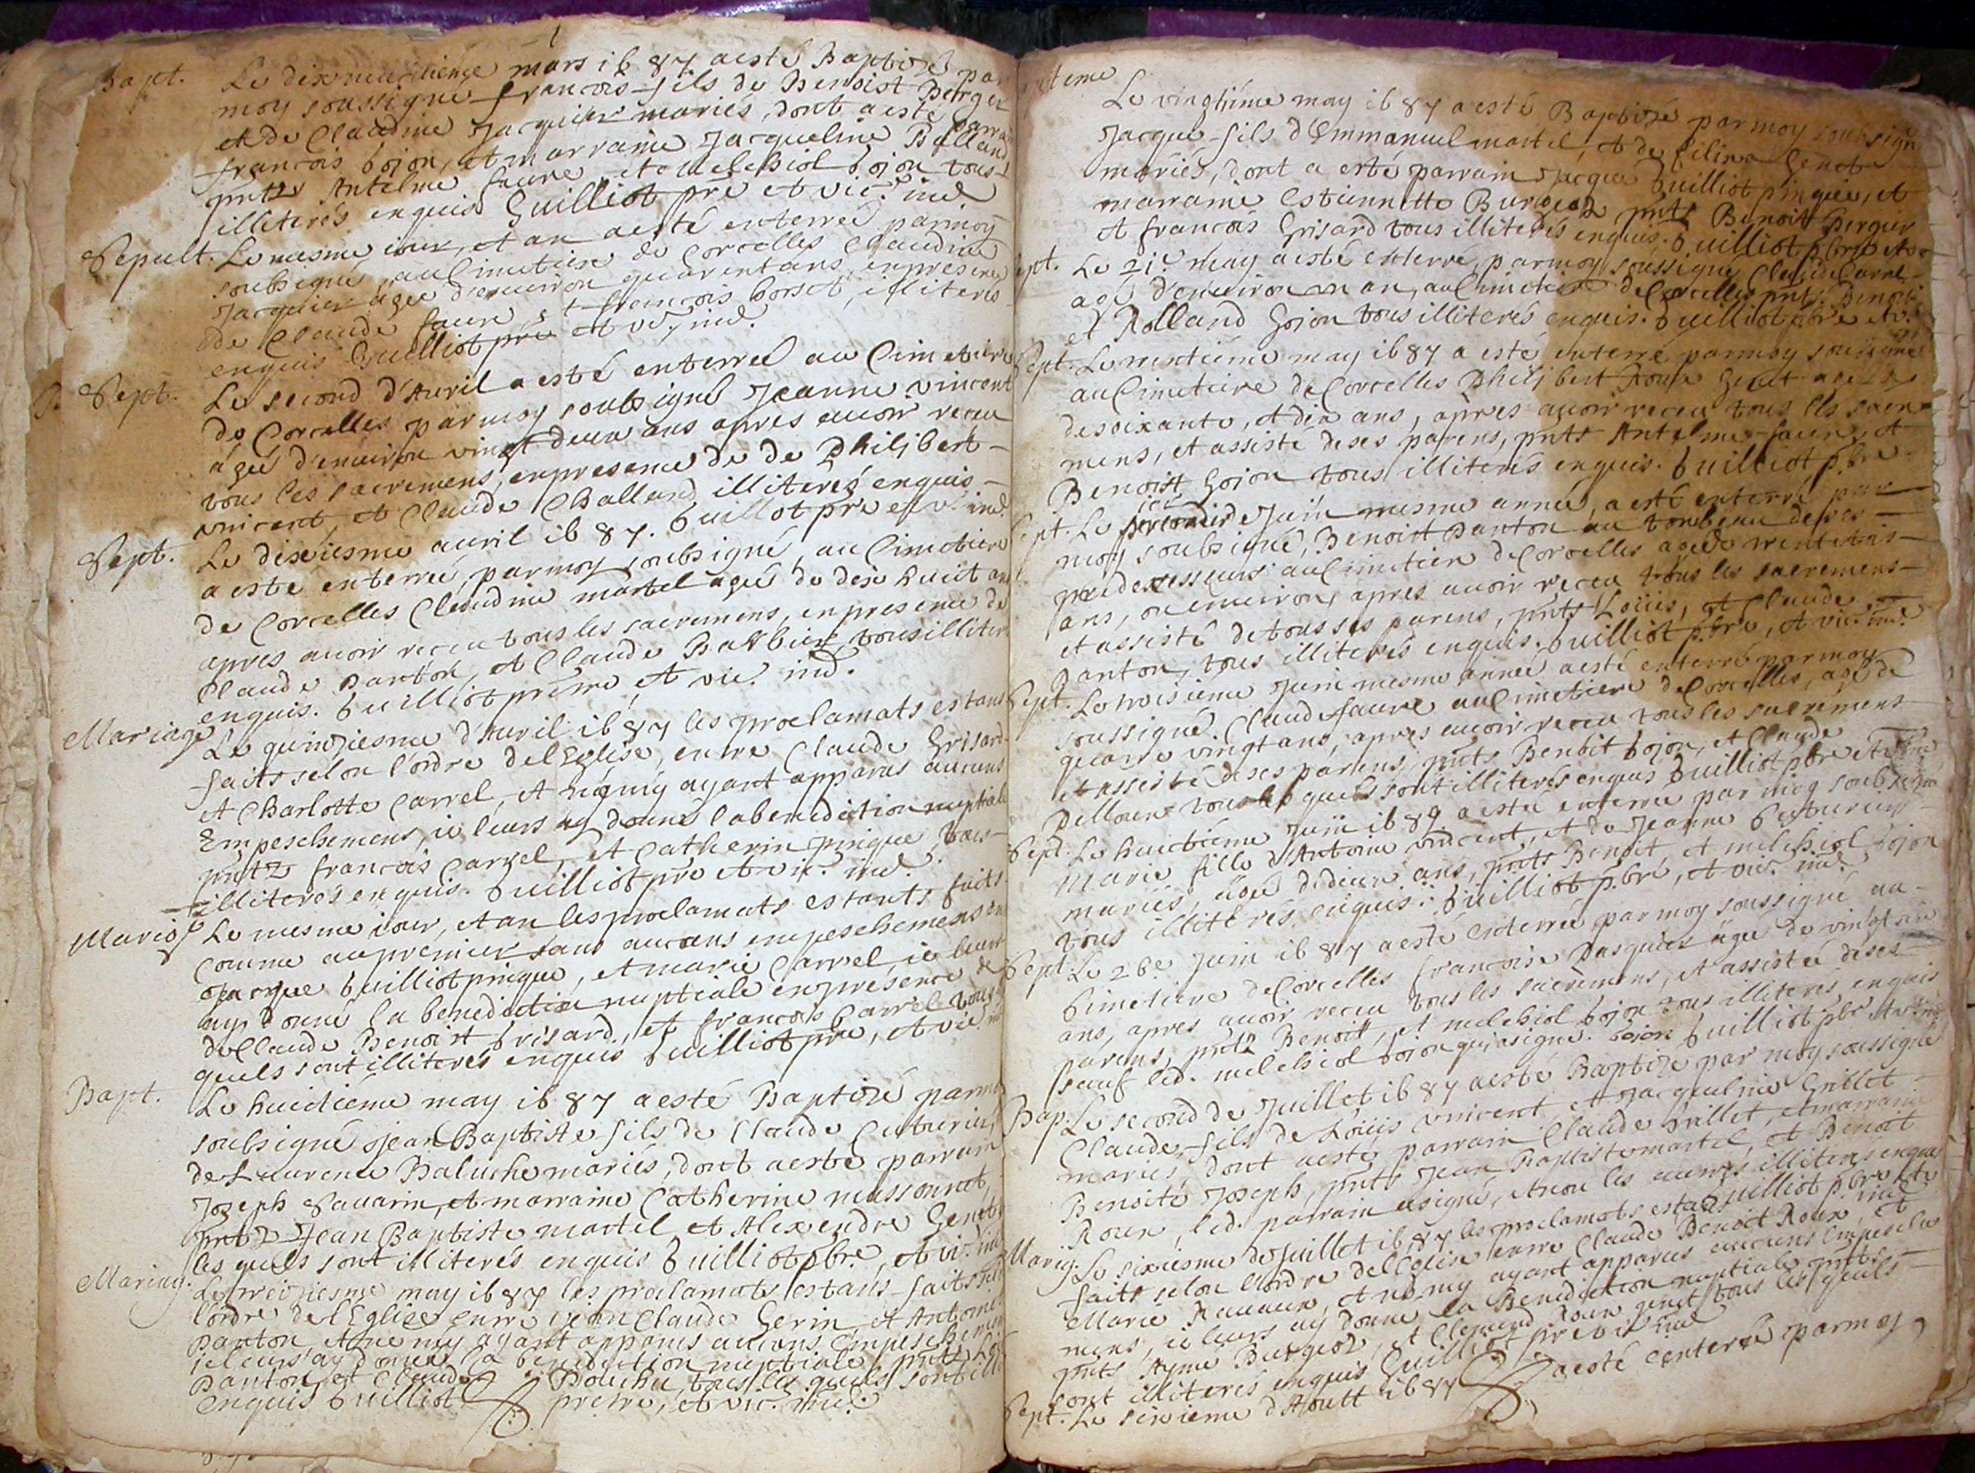 Bapt.
Le dixneufvieme mars 1687 a esté Baptisé par
moy soussigné francois fils de Benoist Berger
et de Claudine Jacquier mariés, dont a esté parrain
francois bojon, et marraine Jacqueline Balland
pnts Antelme faure, et melchiol bojon tous
illiterés enquis Guilliot pre et vic. ind.
Sepult. Le mesme iour, et an a esté enterré par moy
soubsigné, au Cimetiere de Corcelles Claudine
Jacquier agée d'environ quarentans, en presence
de Claude faure, et francois borsat, illiterés
enquis Guilliot pre et vic. ind.
Sept. Le second d'Avril a esté enterrée au Cimetiere
de Corcelles par moy soubsigné Jeanne vincent
agée d'environ vingt deux ans apres avoir receu
tous les sacremens, en presence de de Philibert
vincent, et Claude Challand illiterés enquis
Guilliot pre et v. ind.
Sept. Le dixiesme avril 1687
a esté enterreé, par moy soubsigné, au Cimetiere
de Corcelles Claudine martel ageé de dixe huict ans
apres avoir receu tous les sacremens, en presence de
Claude Danton, et Claude Barbier, tous illiteres
enquis. Guilliot prêtre et vic. ind.
Mariage Le quinziesme d'Avril 1687 les proclamats estans
faits selon l'ordre de l'Eglise, entre Claude Grisard
et Charlotte Carrel, et nemÿ ayant apparus aucuns
Empeschemens, ie leurs ay donné la benediction nuptiale
pntz francois Carrel, et Catherin pingue, tous
illiterés enquis. Guilliot pre et vic. ind.
Mariag. Le mesme iour, et an les proclamats estants faits
comme au premier sans aucuns empeschemens entre
Jacque Guilliot pingue, et marie Carrel ie leur
ay donné la benediction nuptiale en presence de
de Claude Benoist Grisard, et francois Carrel tous
quels sont illiterés enquis Guilliot pre, et vic. ind
Bapt. Le huictiéme may 1687 a esté Baptizé par moy
soubsigné Jean Baptiste fils de Claude Cuturier,
de Laurence Baluche mariés, dont a esté parrain
Jozeph Savarin, et marraine Catherine massonnat,
pntz Jean Baptiste martel et Alexendre Genet
les quels sont illiterés enquis Guilliot pbre, et vic. ind
Mariag. Le treiziesme may 1687 les proclamats estans faits selon
l'ordre de l'Eglise entre Jean Claude Gerin, et Antoinette
Danton et ne my ayant apparus aucuns Empeschemens
ie leurs ay donné la benediction nuptiale, pnts
Danton, et Claude Douchu, tous les quels sont ill.
enquis Guilliot prêtre, et vic. ind.
Le vingtiéme may 1687 a esté Baptizé par moy soubsigné
Jacque fils d'Emmanuel martel, et de filine Genet
mariés, dont a esté parrain Jacque Guilliot pingue, et
marraine Estiennette Burgeoz, pnts Benoist Bergier
et francois Grisard tous illiterés enquis. Guilliot pbre et v.
Sept. Le 21e may a esté enterré, par moy soussigné Claude Carrel
agé d'environ un an, au Cimetiere de Corcelles pnts Benoit
et Rolland Gojon tous illiterés enquis. Guilliot pbre et v.
Sept. Le trentiéme may 1687 a esté enterré par moy soussigné
au Cimetiere de Corcelles Philibert Roux Genet agé
de soixante, et dix ans, apres avoir receu tous les sacre
mens, et assisté de ses parens, pnts Antelme faure, et
Benoist Gojon tous illiterés enquis. Guilliot pbre
Sept. Le premier de Juin mesme année, a esté enterré par
moy soubsigné, Benoist Danton au tombeau de ses
predecesseurs au Cimetiere de Corcelles agé de trente trois
ans, ou environ, apres avoir receu tous les sacremens
et assisté de tous ses parens, pnts Loüis, et Claude
Danton, tous illiterés enquis. Guilliot pbre, et vic. ind.
Sept. Le troisiéme Juin mesme année a esté enterré par moy
soussigné. Claude faure au Cimetiere de Corcelles, agé de
quatre vingt ans, apres avoir receu tous les sacremens
et assisté de ses parens, pnts Benoit bojon, et Claude
Delloux tous lesquels sont illiterés enquis Guilliot pbre et vic.
Sept. Le huictiéme Juin 1687 a esté enterrée par moy soubsigné
Marie fille d'Antoine vincent, et de Jeanne Couturier
mariés, agée de deux ans, pnts Benoit, et melchiol bojon
tous illiterés enquis. Guilliot pbre, et vic. ind.
Sept. Le 26e Juin 1687 a esté enterrée, par moy soussigné au
Cimetiere de Corcelles francoise Pasquier agée de vingt six
ans, apres avoir receu tous les sacremens, et assistée de ses
parens, pntz Benoist, et melchiol bojon tous illiterés enquis
sauf led. melchiol bojon qui a signé. bojon Guilliot pbr et vic ind
Bap. Le second de Juillet 1687 a esté Baptizé par moy soussigné
Claude, fils de Loüis vincent, et Jacqueline Grillet
mariés, dont a esté parrain Claude Grillet, et marraine
Benoite Joseph, pnts Jean Baptiste martel, et Benoit
Roux, led. parrain a signé, et non les autres illiteres enquis
Guilliot pbre et vic ind
Mariag. Le sixiesme de Juillet 1687 les proclamats estans
faits selon l'ordre de l'Eglise entre Claude Benoit Roux, et
Marie Ravaux, et ne my ayant apparus aucuns Empesche
mens, ie leurs ay donné la Benediction nuptiale pnts
pnts Ayme Burgeoz, et Clemend Roux genet tous lesquels
sont illiterés enquis Guilliot pre vic ind
Sept. Le sixieme d'Aoust 1687 a esté enterré par moy